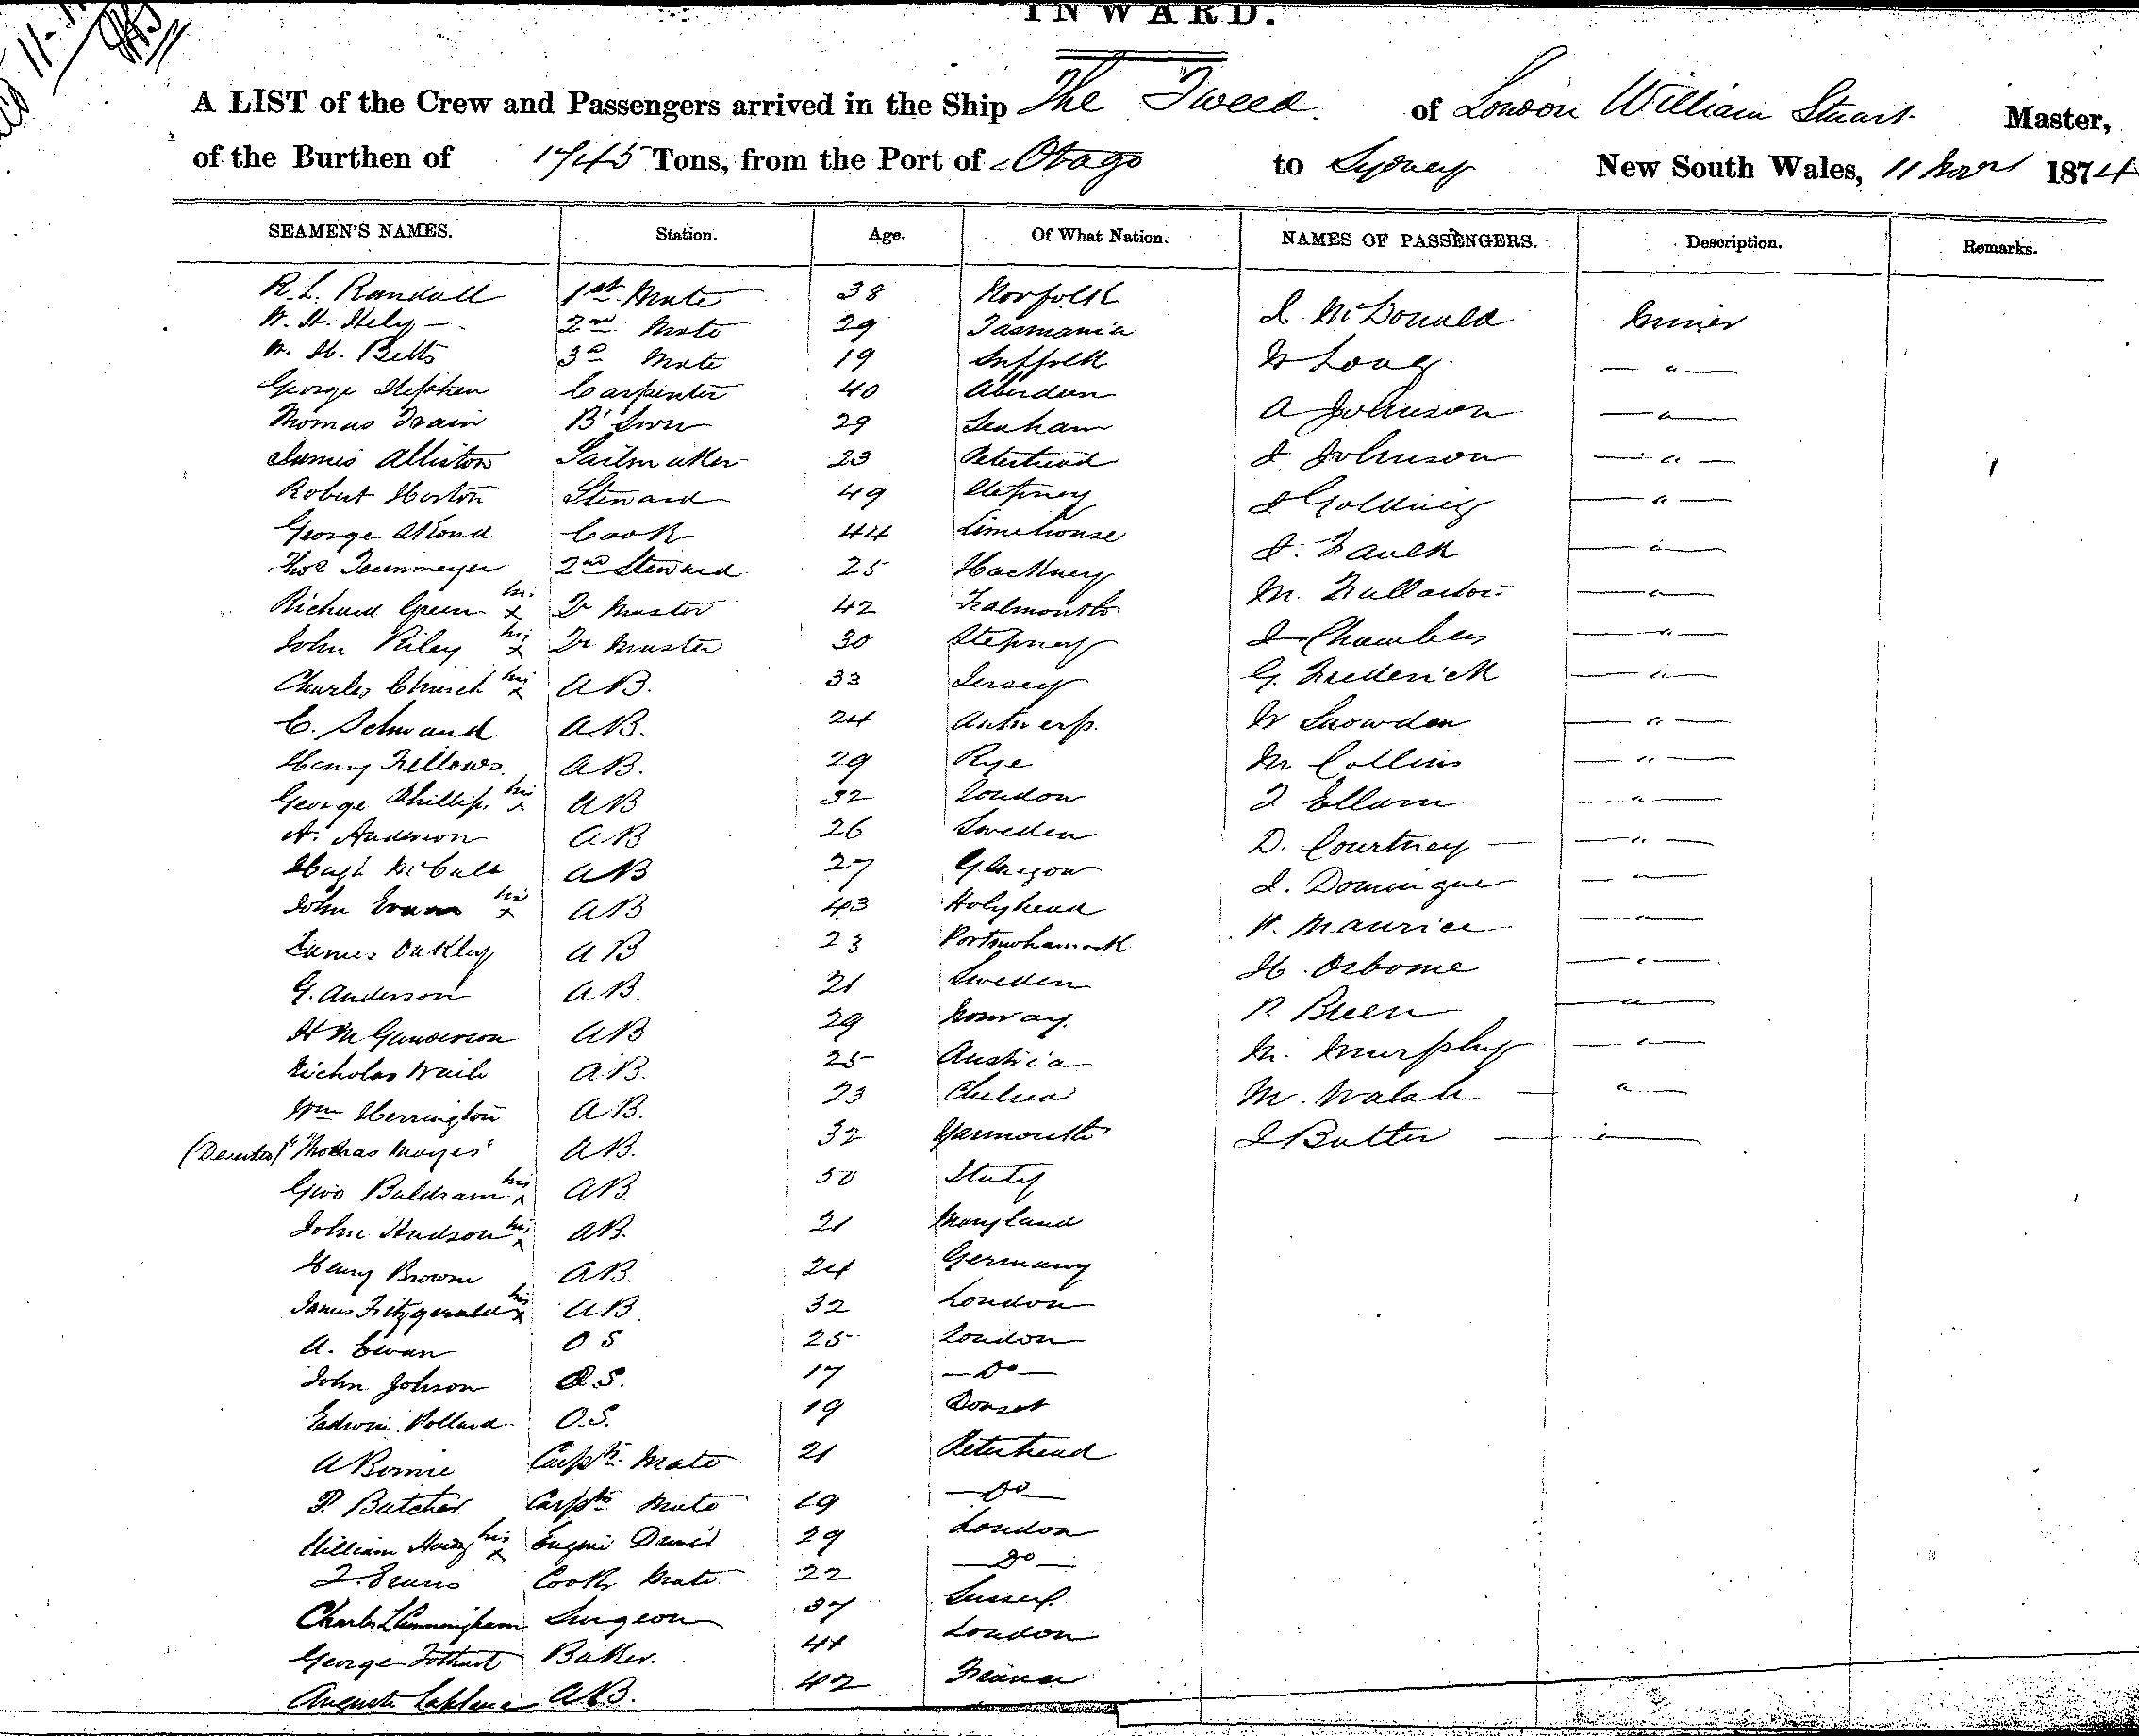 INWARD.
A LIST of the Crew and Passengers arrived in the Ship The Tweed of London William Stuart Master,
of the Burthen of 1745 Tons, from the Port of Otago to Sydney New South Wales, 11 Novr 1874
SEAMEN'S NAMES. Station. Age. Of What Nation. NAMES OF PASSENGERS. Description. Remarks.
R. L. Randall 1st Mate 38 Norfolk J. McDonald Miner
W. H. Hely 2nd Mate 29 Tasmania W Long — " —
W. H. Betts 3d Mate 19 Suffolk A Johnson — " —
George Stephen Carpenter 40 Aberdeen J Johnson — " —
Thomas Train B'Swn 29 Seaham J Golding — " —
James Alliston Sailmaker 23 Peterhead J. Faulk — " —
Robert Horton Steward 49 Stepney M. Fullarton — " —
George Cook 44 Limehouse J Chambers — " —
Thos Teunmeyer 2nd Steward 25 Hackney G. Frederick — " —
Richard Green his x Qr Master 42 Falmouth W Snowden — " —
John Riley his x Qr Master 30 Stepney M Collins — " —
Charles Church his x AB. 33 Jersey T Ellam — " —
C. Schwand AB. 24 Antwerp. D. Courtney — " —
Henry Fellows AB. 29 Rye J. Dominique — " —
George Phillips his x AB 32 London W. Maurice — " —
A. Anderson AB 26 Sweden H. Osborne — " —
Hugh McCall AB 27 Glasgow P. Breen — " —
John Evans his x AB 43 Holyhead M. Murphy — " —
James Oakley AB 23 M. Walsh — " —
G. Anderson AB. 21 Sweden J Butler — " —
H M Gunderson AB 29 Norway.
Nicholas AB. 25 Austria
Wm Herrington AB. 23 Chelsea
(Deserted) "Thomas Mayes" AB. 32 Yarmouth
Baldram his x AB. 50 Italy
John Hudson his x AB. 21 Maryland
Henry Browne AB. 24 Germany
James Fitzgerald his x AB. 32 London
A. Ewan OS 25 London
John Johson O.S. 17 — Do —
Edwin Pollard O.S. 19 Dorset
A Birnie Carptrs Mate 21 Peterhead
P. Butcher Carptrs Mate 19 — Do —
William his x Engine Driver 29 London
Cooks Mate 22 — Do —
Charles L Cunningham Surgeon 37 Sussex
George Baker. 41 London
Auguste Laplace AB. 42 France